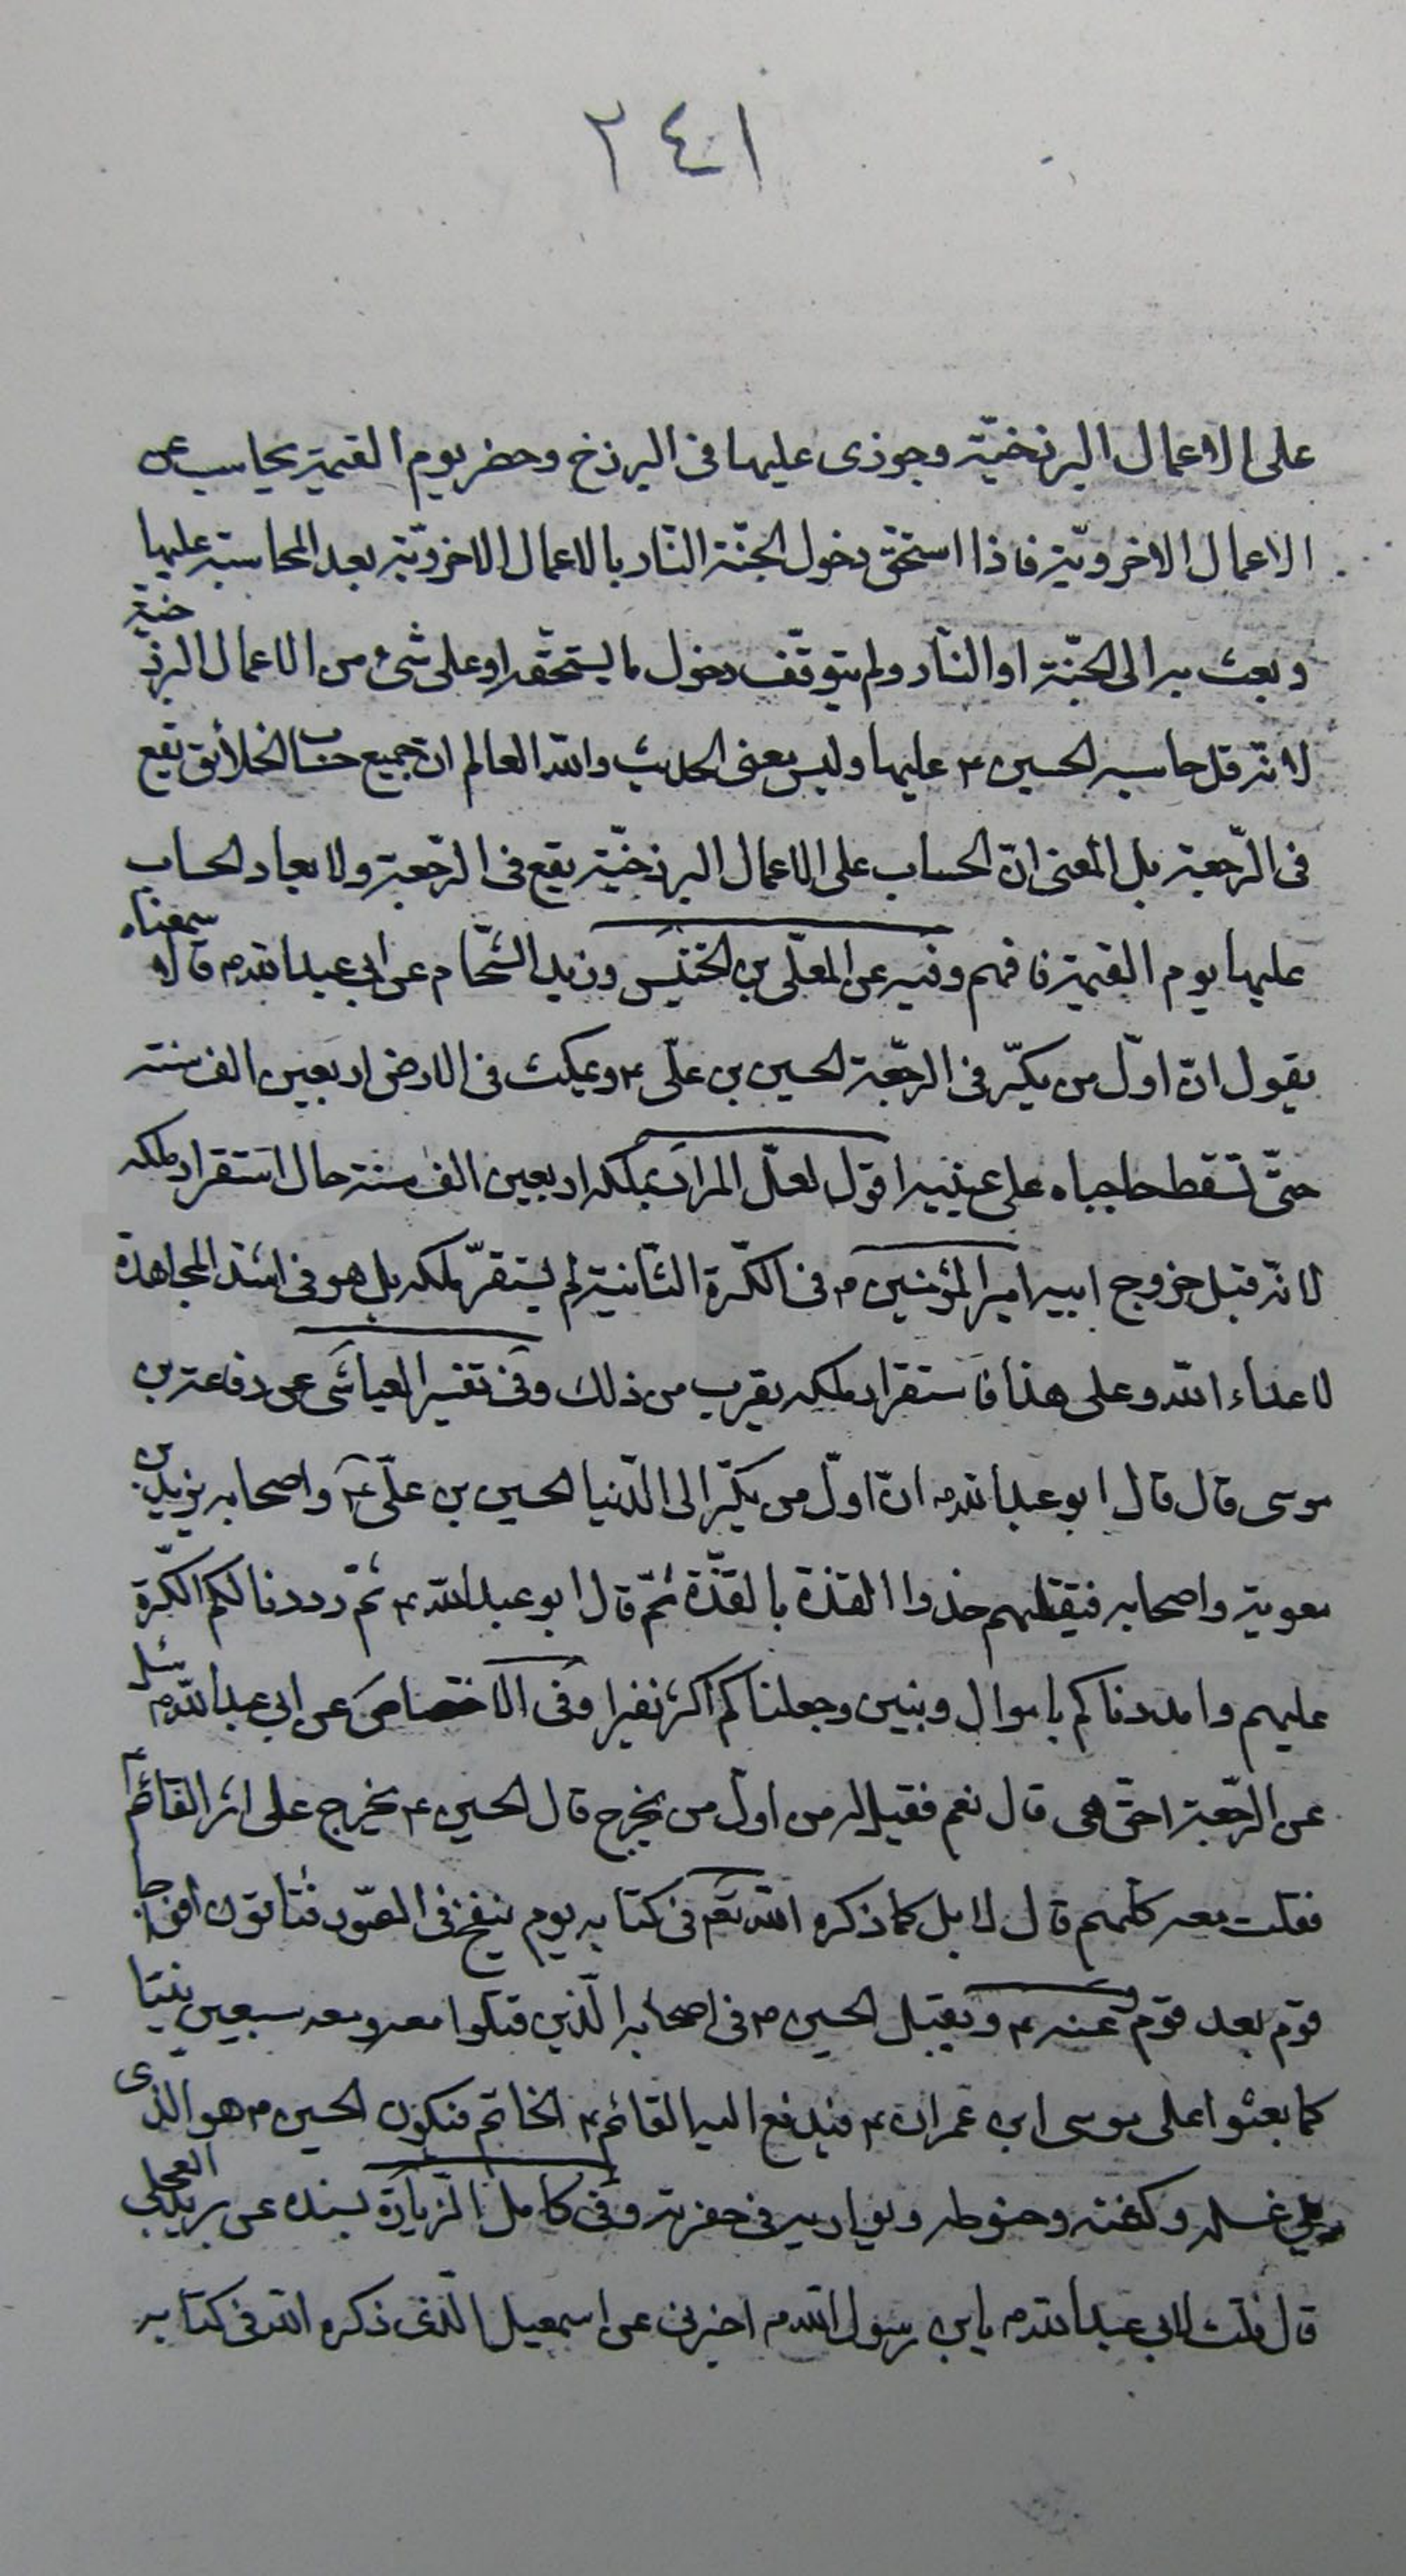 ٢٤١
على الاعمال البرزخيّة وجوزى عليها فى البرزخ وحضر يوم القيمة يحاسب عن
الاعمال الاخرويّة فاذا استحق دخول الجنّة النّار بالاعمال الاخرويّة بعد المحاسبة عليها
وبعث به الى الجنّة او النّار ولم يتوقّف دخول ما يستحقه او على شئ من الاعمال البرزخيّة
لانّه قد حاسبه الحسين ع عليها وليس معنى الحديث والله العالم انّ جميع حساب الخلائق تقع
فى الرّجعة بل المعنى انّ الحساب على الاعمال البرزخيّة يقع فى الرّجعة ولا يعاد الحساب
عليها يوم القيمة فافهم وفيه عن المعلّى بن الخنيس وزيد الشّحّام عن ابى عبد الله ع قالا سمعناه
يقول انّ اوّل من يكرّ فى الرّجعة الحسين بن علّى ع ويمكث فى الارض اربعين الف سنة
حتّى تسقط حاجباه على عينيه اقول لعلّ المراد بملكه اربعين الف سنة حال استقرار ملكه
لانّه قبل خروج ابيه امير المؤمنين ع فى الكرّة الثّانية لم يستقرّ ملكه بل هو فى اشدّ المجاهدة
لاعداء الله وعلى هذا فاستقرار ملكه يقرب من ذلك وفى تفسير العياشى عن رفاعة بن
موسى قال قال ابو عبد الله ع انّ اوّل من يكرّ الى الدّنيا الحسين بن علّى ع واصحابه يزيد بن
معوية واصحابه فيقتلهم حذوا القذة بالقذّة ثمّ قال ابو عبد الله ع ثمّ رددنا لكم الكرّة
عليهم وامددناكم باموال وبنين وجعلناكم اكثر نفيرا وفى الاختصاص عن ابى عبد الله ع سئل
عن الرّجعة احقّ هى قال نعم فقيل له من اوّل من يخرج قال الحسين ع يخرج على اثر القائم ع
فقلت معه كلّهم قال لا بل كما ذكره الله تعم فى كتابه يوم ينفخ فى الصّور فتأتون افواجا
قوم بعد قوم وعنه ع ويقبل الحسين ع فى اصحابه الّذين قتلوا معه ومعه سبعين نبيّا
كما بعثوا على موسى ابن عمران ع فيدفع اليه القائم ع الخاتم فيكون الحسين ع هو الّذى
يلى غسله وكفنه وحنوطه ويواريه فى حفرته وفى كامل الزّيارة بسنده عن بريد العجلى
قال قلت لابى عبد الله ع يابن رسول الله ع اخبرنى عن اسمعيل الّذى ذكره الله فى كتابه